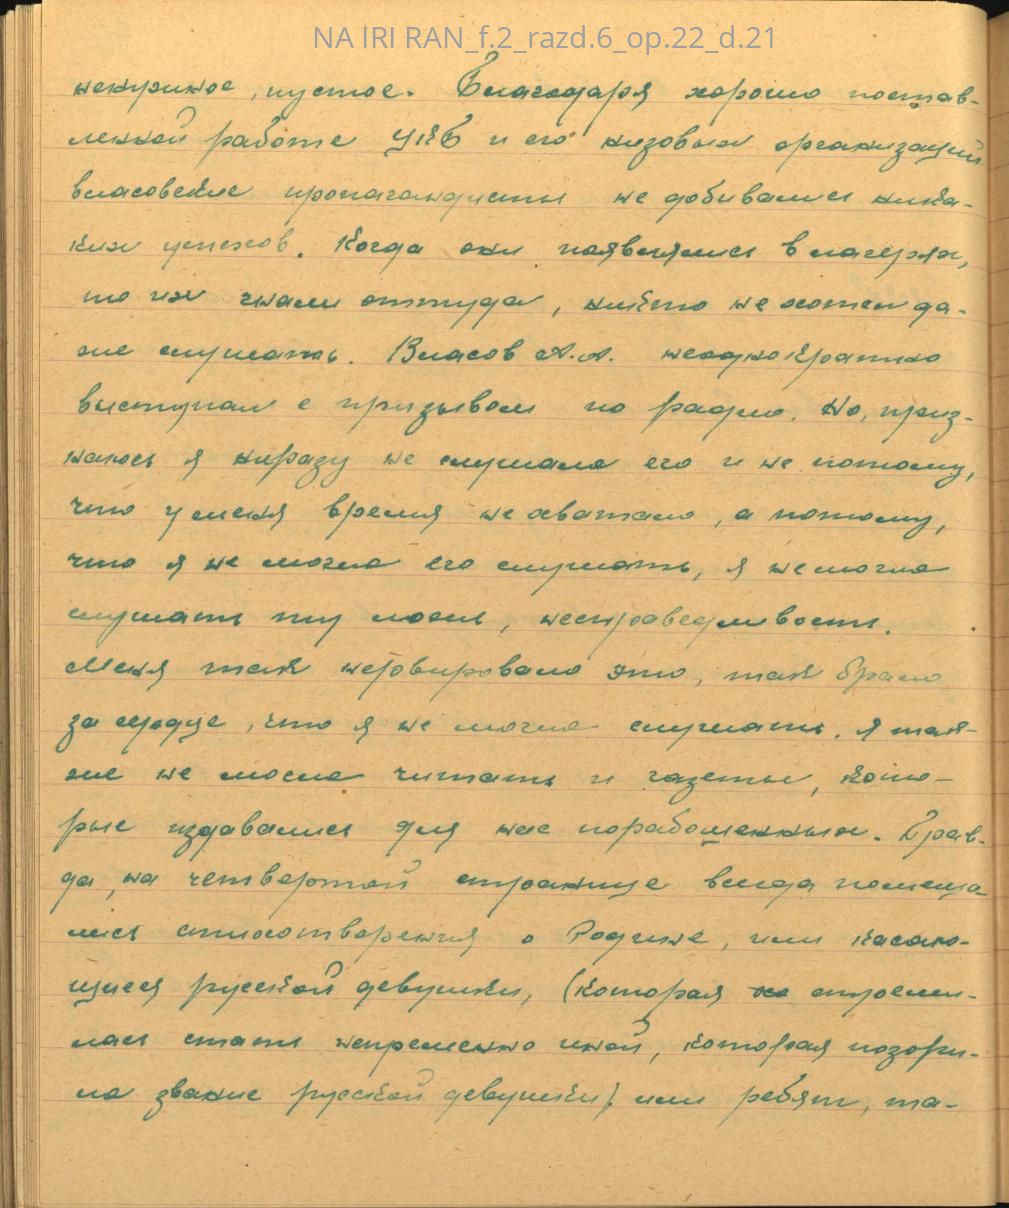 NA IRI RAN_f.2_razd.6_op.22_d.21
ненужное, пустое. Благодаря хорошо постав-
ленной работе УКБ и его низовых организаций
власовские пропагандисты не добивались ника-
ких успехов. Когда они появлялись в лагерях,
то их гнали оттуда, никто не хотел да-
же слушать. Власов А.А. неоднократно
выступал с призывом по радио. Но, приз-
наюсь я ниразу не слушала его и не потому,
что у меня время не хватало, а потому,
что я не могла его слушать, я не могла
слушать ту ложь, несправедливость.
Меня так нервировало это, так брало
за сердце, что я не могла слушать. Я так-
же не могла читать и газеты, кото-
рые издавались для нас порабощенных. Прав-
да, на четвертой странице всегда помеща-
лись стихотворения о Родине, или касаю-
щиеся русской девушки, (которая стреми-
лась стать непременно иной, которая позори-
ла звание русской девушки) или ребят, та-